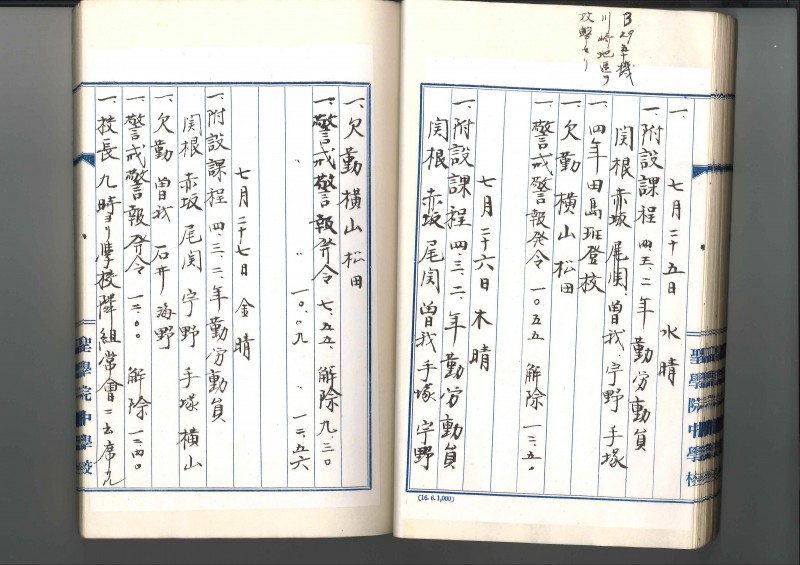 B29五十機
川崎地区ヲ
攻撃セリ
一、七月二十五日 水 晴
一、附設課程 四、五、二年 勤労動員
関根 赤坂 尾関 曽我 宇野 手塚
一、四年田島班登校
一、欠勤 横山 松田
一、警戒警報発令 一〇、五五 解除 一二、五〇
七月二十六日 木 晴
一、附設課程 四、三、二、年 勤労動員
関根 赤坂 尾関 曽我 手塚 宇野
聖學院中學校
(16. 6. 1,000)
一、欠勤 横山 松田
一、警戒警報発令 七、五五、解除 九、三〇
〃 一〇、〃九 〃 一二、五六
七月二十七日 金 晴
一、附設課程 四、三、二、年勤労動員
関根 赤坂 尾関 宇野 手塚 横山
一、欠勤 曽我 石井 海野
一、警戒警報発令 一二、〇〇 解除 一二、四〇
一、校長 九時ヨリ學校隣組常會ニ出席ス
聖學院中學校